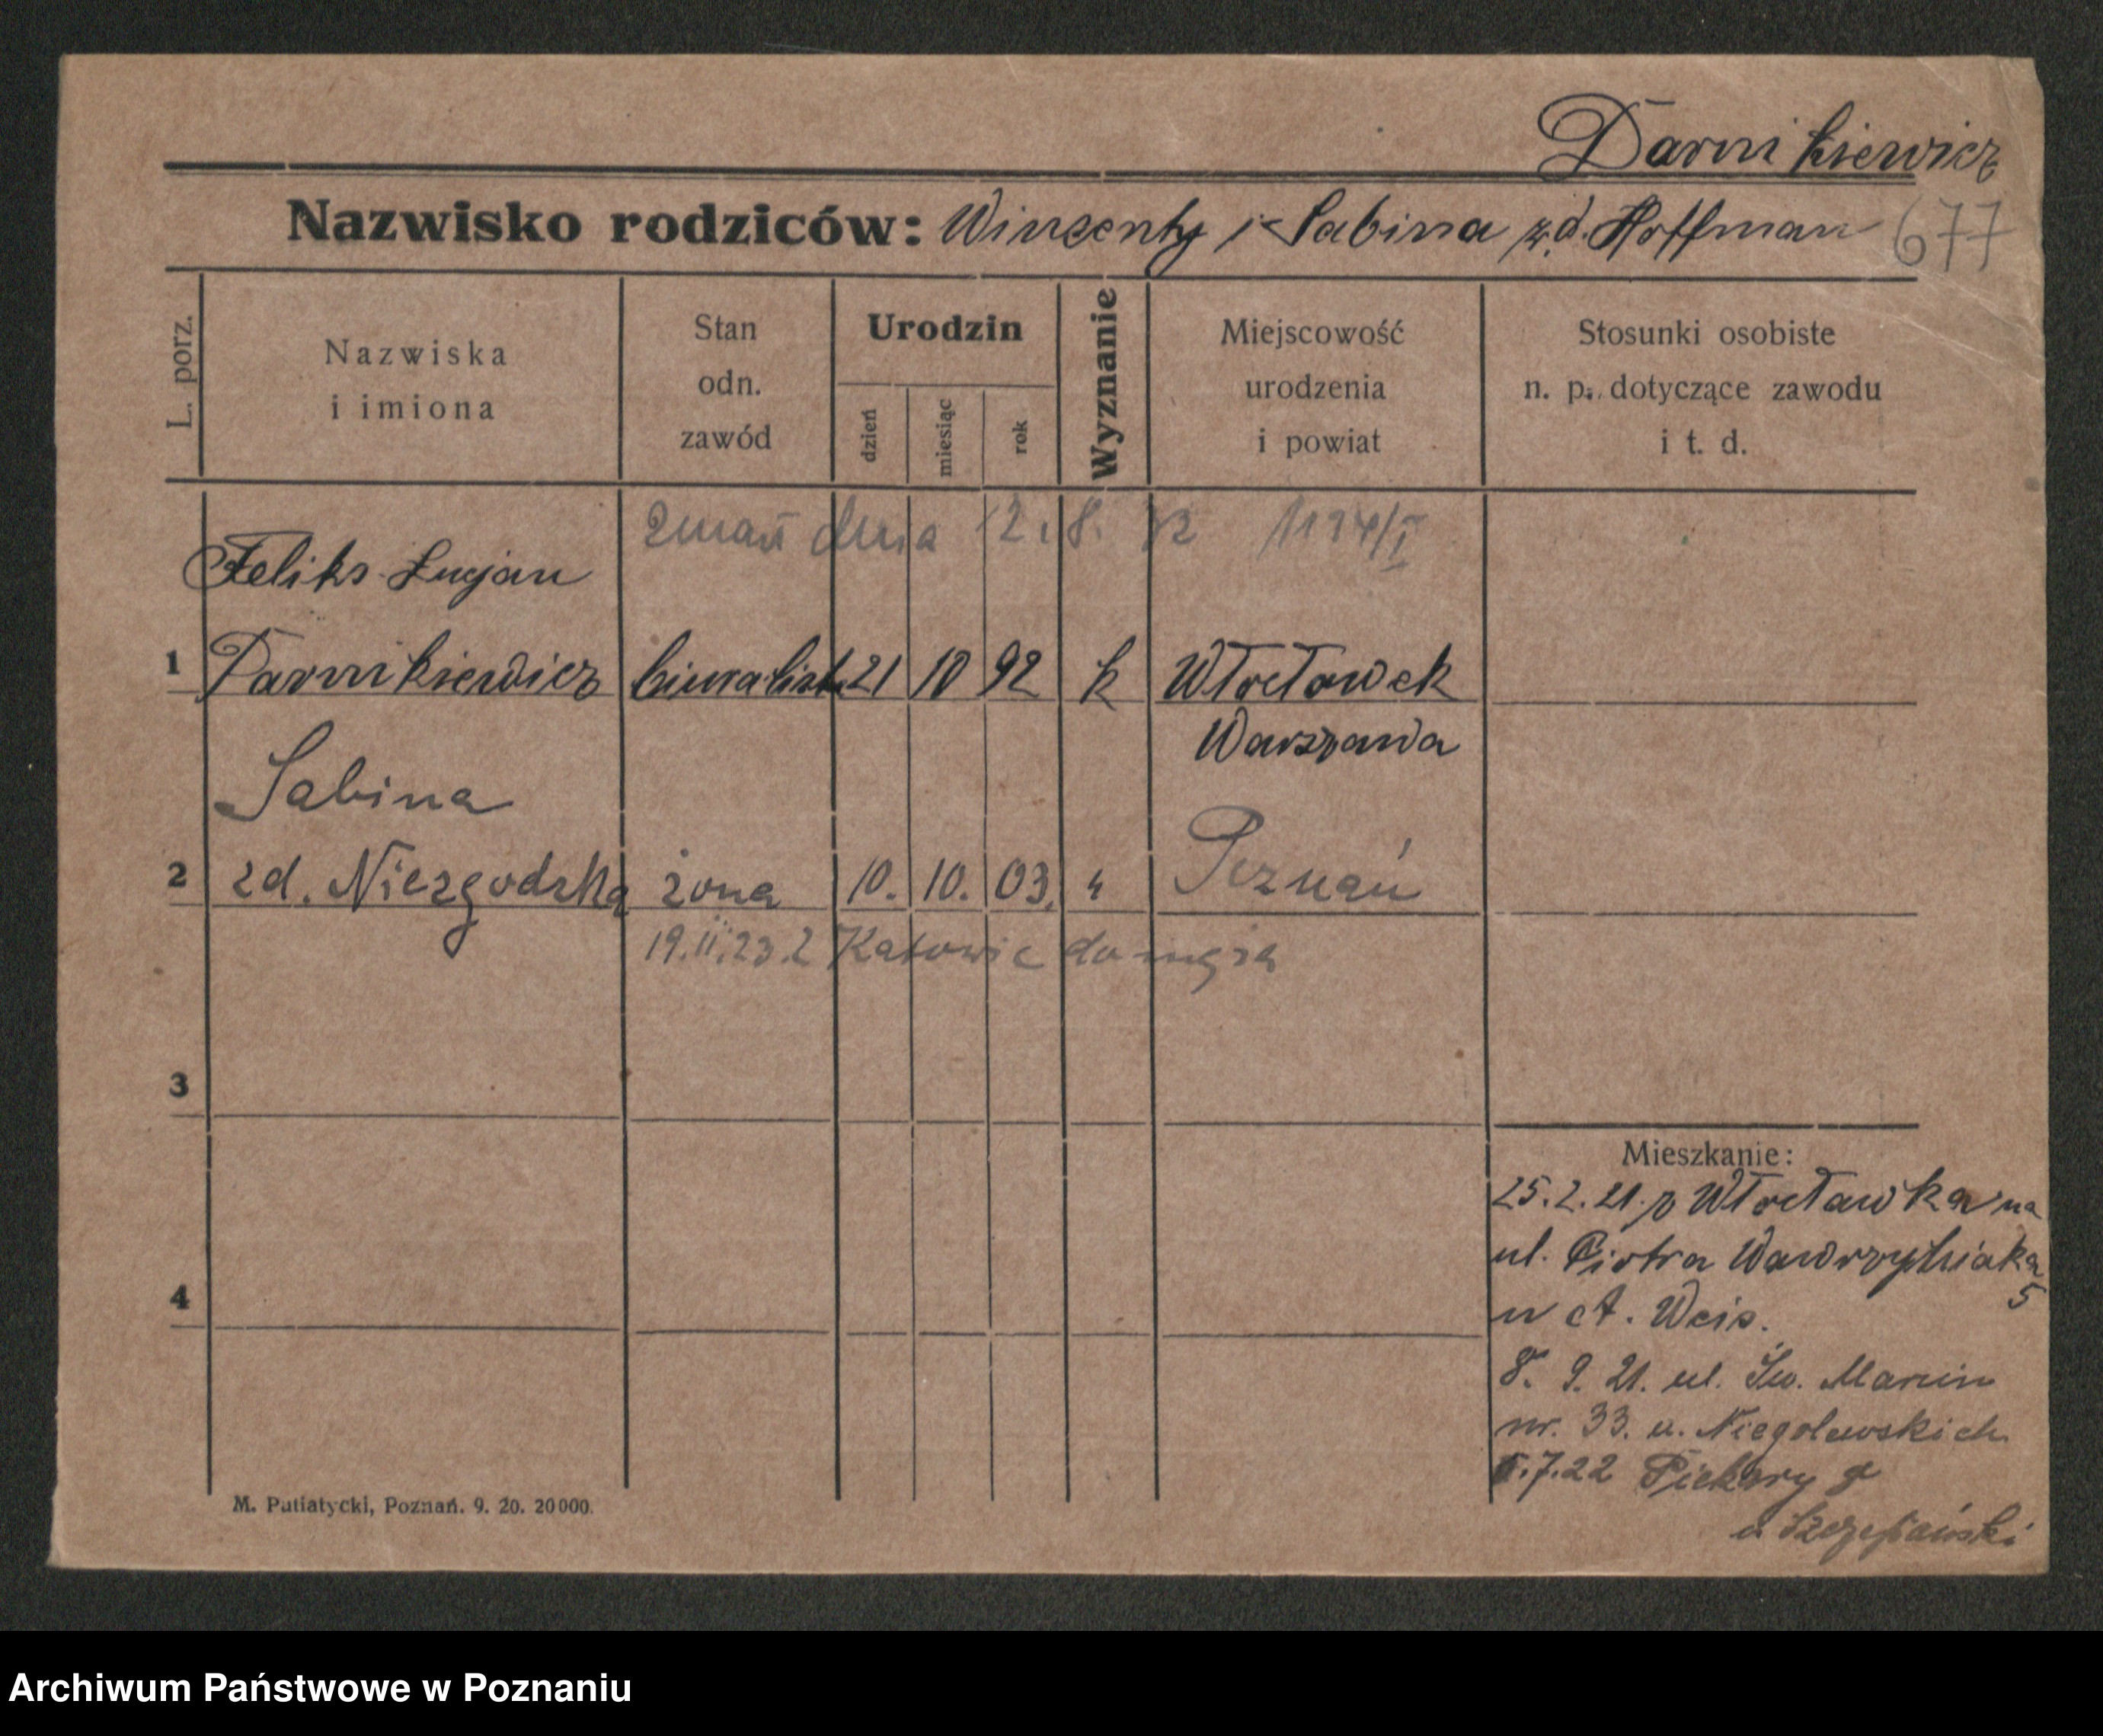 Darnikiewicz
Nazwisko rodziców: Wincenty i Sabina z d. Hoffman 677
L. porz.
Nazwiska
i imiona
Stan
odn.
zawód
Urodzin
dzień
miesiąc
rok
Wyznanie
Miejscowość
urodzenia
i powiat
Stosunki osobiste
n. p. dotyczące zawodu
i t. d.
zmarł dnia 12. 8. 32 1134/I
Feliks Lucjan
1 Darnikiewicz biuralista 21 10 92 k Włocławek
Warszawa
Sabina
2 zd. Niezgodzka żona 10. 10. 03. " Poznań
19.II.23. z Katowic do męża
3
4
Mieszkanie:
25.2.21. z Włocławka na
ul. Piotra Wawrzyniaka
5
u A. Weis.
8. 9. 21. ul. Św. Marcin
nr. 33. u. Niegolewskich
7.22 Piekary
u Szczepański
M. Putiatycki, Poznań. 9. 20. 20000.
Archiwum Państwowe w Poznaniu